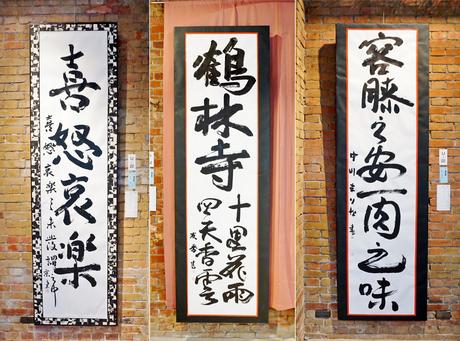 喜怒哀楽
喜怒哀楽之未發謂
鶴林寺
十里花雨
四天香雲
容膝之安一肉之味
中川